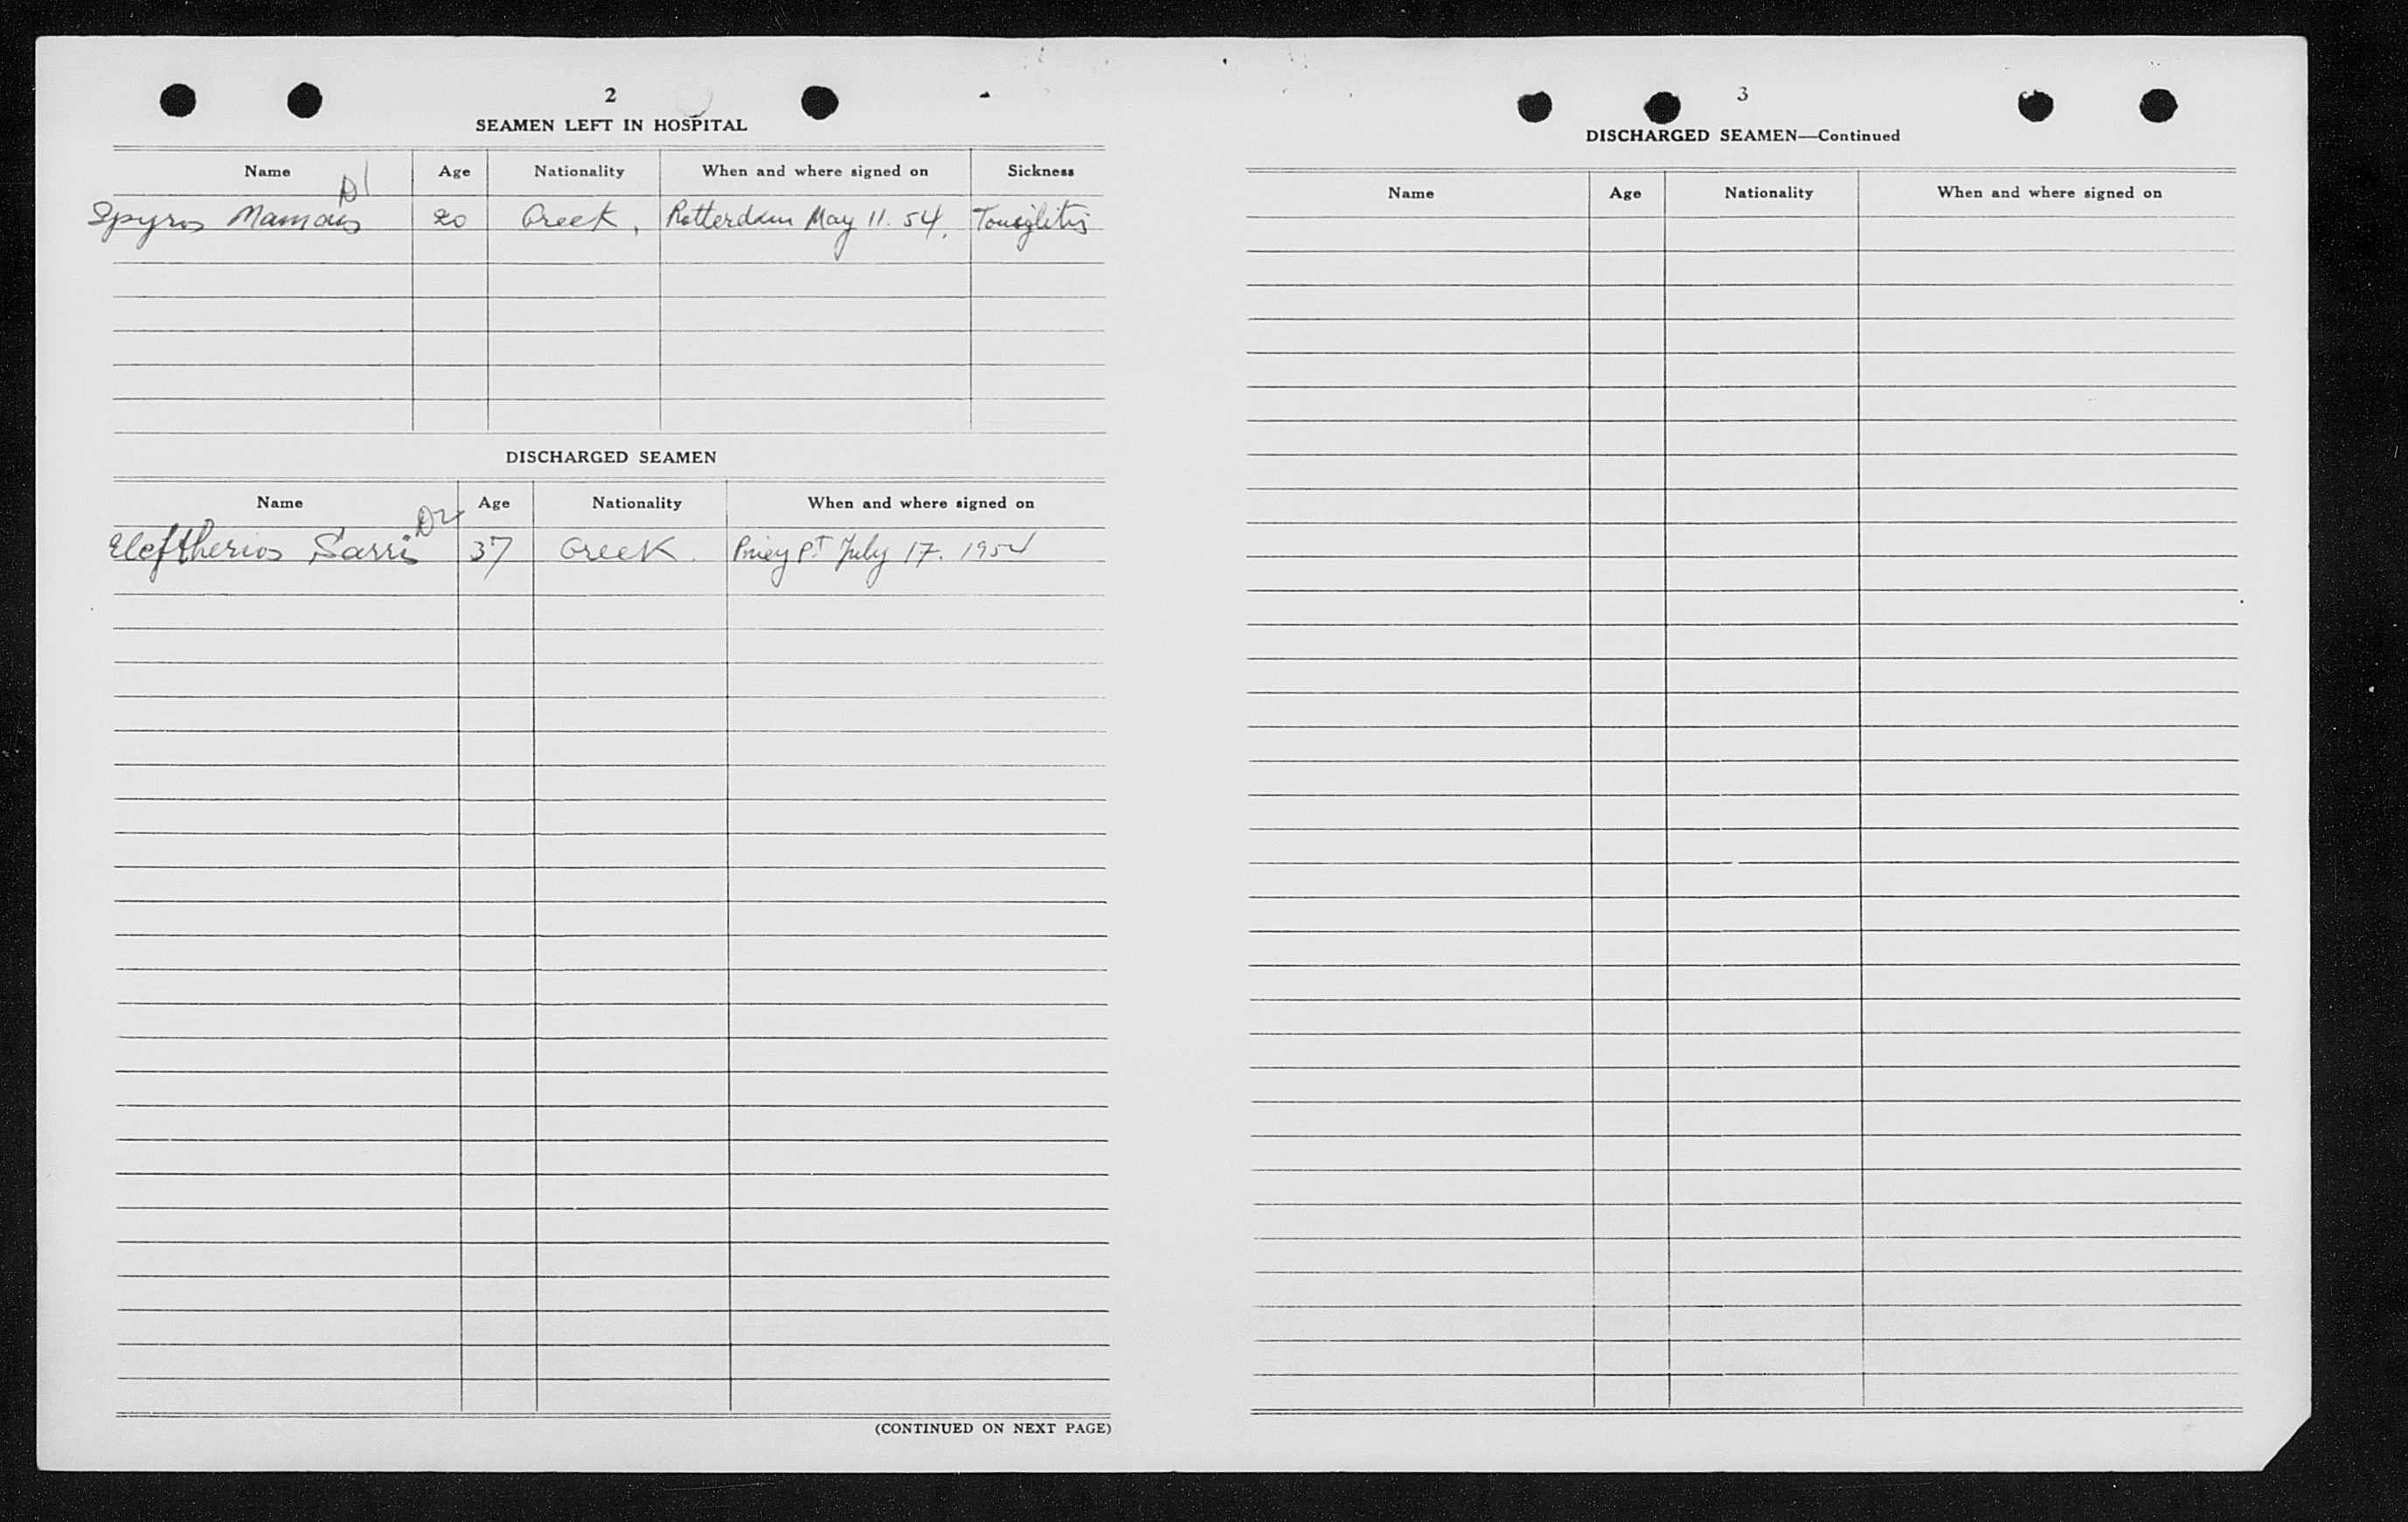 2
SEAMEN LEFT IN HOSPITAL
Name Age Nationality When and where signed on Sickness
D1
Spyros 20 Greek, Rotterdam May 11. 54.
DISCHARGED SEAMEN
Name Age Nationality When and where signed on
D2
Eleftherios Sarris 37 Greek. Piney Pt July 17. 1954
(CONTINUED ON NEXT PAGE)
3
DISCHARGED SEAMEN—Continued
Name Age Nationality When and where signed on